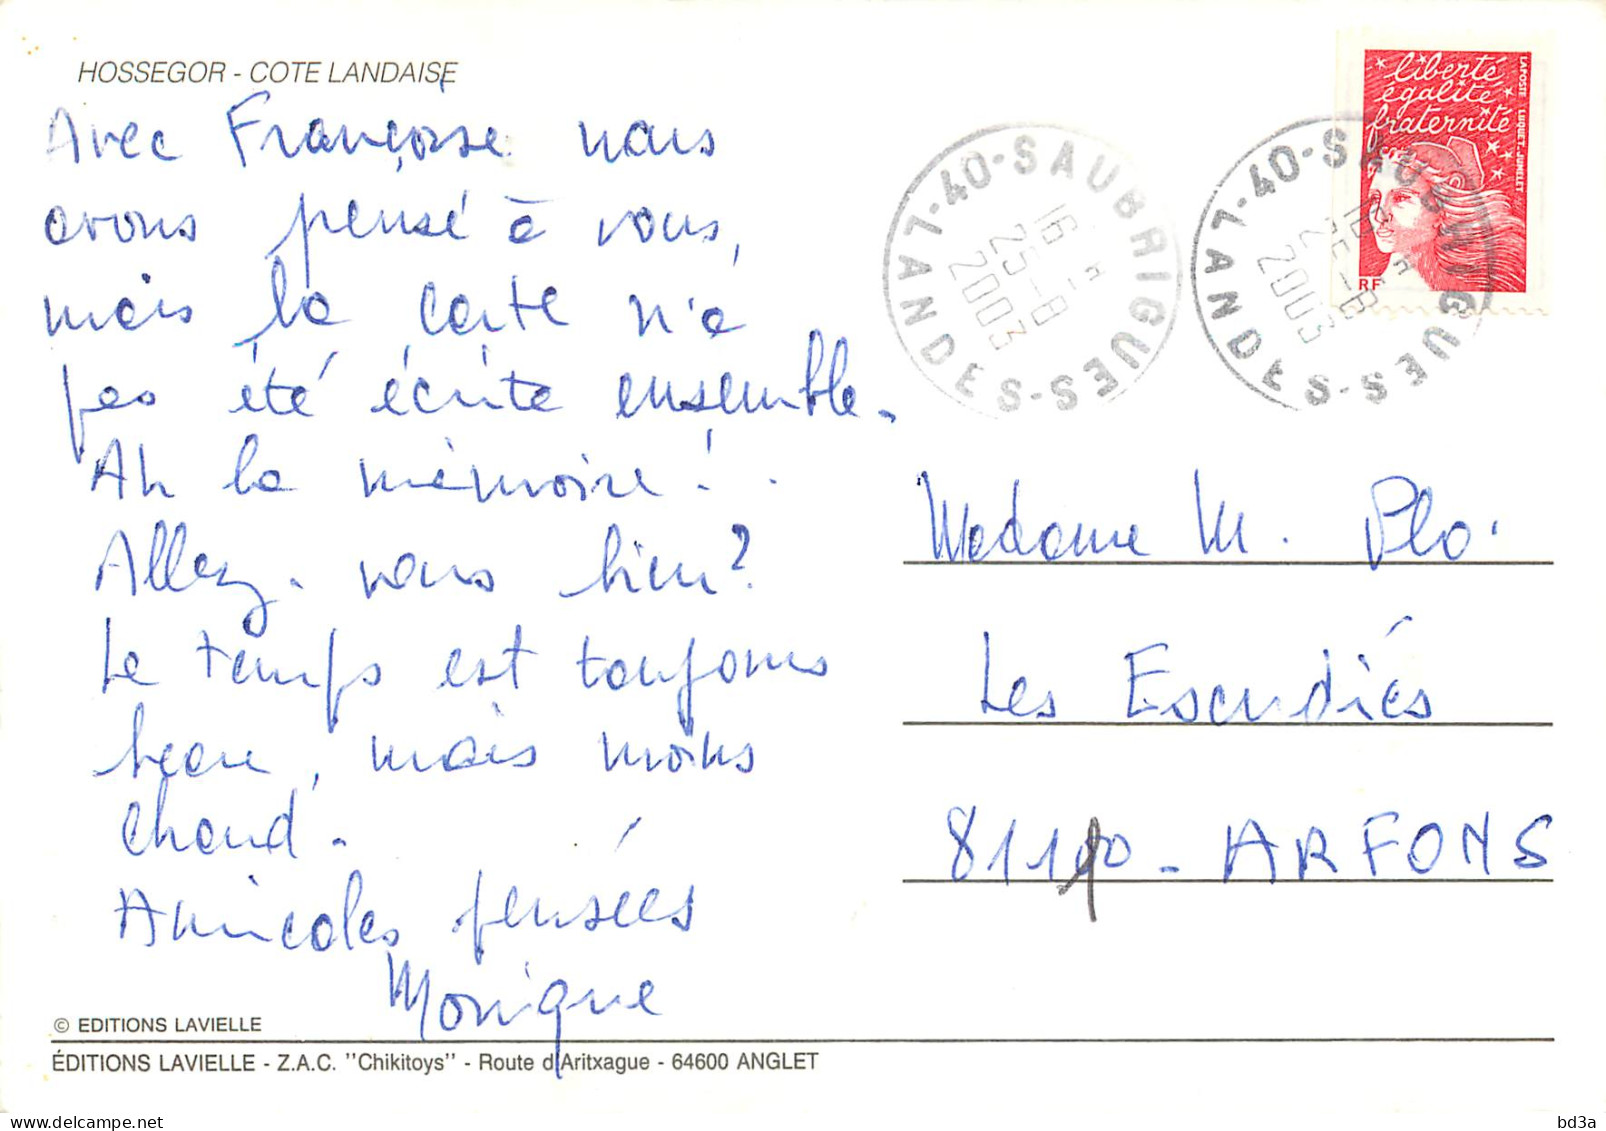 HOSSEGOR - COTE LANDAISE
Avec Françoise nous
avons pensé à vous,
mais la carte n'a
pas été écrite ensemble.
Ah la mémoire !..
Allez-vous bien ?
Le temps est toujours
beau, mais moins
chaud.
Amicales pensées
Monique
© EDITIONS LAVIELLE
ÉDITIONS LAVIELLE - Z.A.C. "Chikitoys" - Route d'Aritxague - 64600 ANGLET
40-SAUBRIGUES-LANDES
16 H
25-8
2003
40-SAUBRIGUES-LANDES
16 H
25-8
2003
liberté
égalité
fraternité
RF
LA POSTE LUQUET-JUMELET
Madame M. Plo.
Les Escudiés
81110 - ARFONS
bd3a